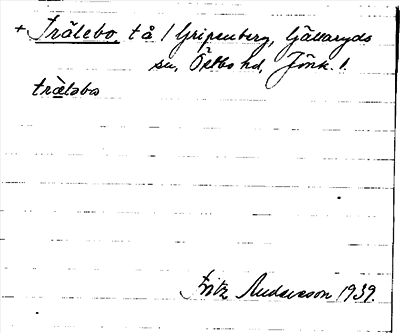 + Trälebo, tå / Gripenberg, Gällaryds
sn, Östbo hd, Jönk. l.
trä̀ləbo
Fritz Andersson 1939.